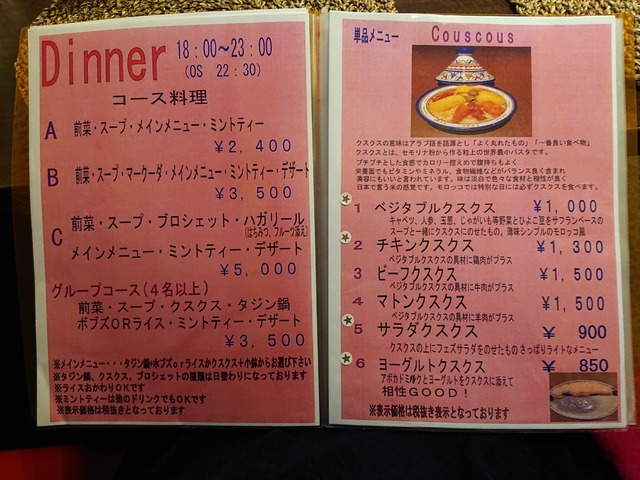 Dinner 18：00～23：00
（OS 22：30）
コース料理
A 前菜・スープ・メインメニュー・ミントティー
￥2，400
B 前菜・スープ・マークーダ・メインメニュー・ミントティー・デザート
￥3，500
C 前菜・スープ・ブロシェット・ハガリール
（はちみつ、フルーツ添え）
メインメニュー・ミントティー・デザート
￥5，000
グループコース（４名以上）
前菜・スープ・クスクス・タジン鍋
ボブズORライス・ミントティー・デザート
￥3，500
※メインメニュー・・・タジン鍋+ホブズｏｒライスかクスクス＋小鉢からお選び下さい
※タジン鍋、クスクス、ブロシェットの種類は日替わりになっております
※ライスおかわりOKです
※ミントティーは他のドリンクでもOKです
※表示価格は税抜きとなっております
単品メニュー Couscous
クスクスの意味はアラブ語を語源とし「よく丸れたもの」「一番良い食べ物」
クスクスとは、セモリナ粉から作る粒上の世界最小パスタです。
プチプチとした食感でカロリー控えめで腹持ちもよく
栄養面でもビタミンやミネラル、食物繊維などがバランス良く含まれ
美容にもいいと言われています。味は淡白で色々な食材と相性が良く
日本で言う米の感覚です。モロッコでは特別な日には必ずクスクスを食べます。
1 ベジタブルクスクス ￥1，000
キャベツ、人参、玉葱、じゃがいも等野菜とひよこ豆をサフランベースの
スープと一緒にクスクスにのせたもの。薄味シンプルのモロッコ風
2 チキンクスクス ￥1，300
ベジタブルクスクスの具材に鶏肉がプラス
3 ビーフクスクス ￥1，500
ベジタブルクスクスの具材に牛肉がプラス
4 マトンクスクス ￥1，500
ベジタブルクスクスの具材に羊肉がプラス
5 サラダクスクス ￥ 900
クスクスの上にフェズサラダをのせたもの さっぱりライトなメニュー
6 ヨーグルトクスクス ￥ 850
アボカドミルクとヨーグルトをクスクスに添えて
相性GOOD！
※表示価格は税抜き表示となっております